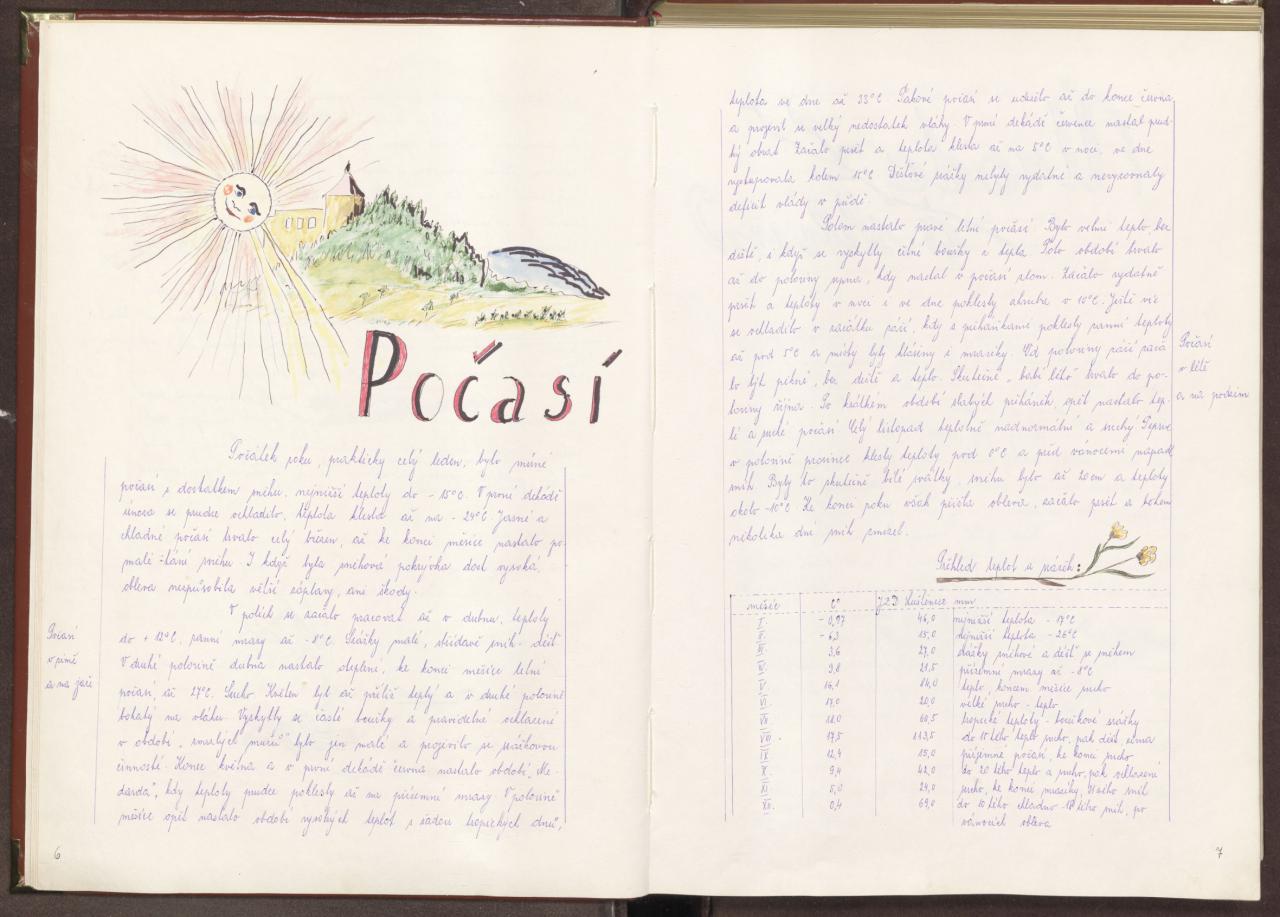 Počasí
Počátek roku, prakticky celý leden, bylo mírné
počasí s dostatkem sněhu, nejnižší teploty do - 15°C. V první dekádě
února se prudce ochladilo, teplota klesla až na - 24°C. Jasné a
chladné počasí trvalo celý březen, až ke konci měsíce nastalo po-
malé tání sněhu. I když byla sněhová pokrývka dost vysoká,
obleva nezpůsobila větší záplavy, ani škody.
V polích se začalo pracovat až v dubnu, teploty
do + 12°C, ranní mrazy až - 8°C. Srážky malé, střídavě sníh - déšť
V druhé polovině dubna nastalo oteplení, ke konci měsíce letní
počasí až 27°C. Sucho. Květen byl až příliš teplý a v druhé polovině
bohatý na vláhu. Vyskytly se časté bouřky a pravidelné ochlazení
v období „zmrzlých mužů" bylo jen malé a projevilo se srážkovou
činností. Konec května a v první dekádě června nastalo období „Me-
darda", kdy teploty prudce poklesly až na přízemní mrazy. V polovině
měsíce opět nastalo období vysokých teplot s řadou tropických dnů,
Počasí
v zimě
a na jaře
6
teplota ve dne až 33°C. Takové počasí se udrželo až do konce června
a projevil se velký nedostatek vláhy. V první dekádě července nastal prud-
ký obrat. Začalo pršet a teplota klesla až na 5°C v noci, ve dne
vystupovala kolem 15°C. Dešťové srážky nebyly vydatné a nevyrovnaly
deficit vlády v půdě.
Potom nastalo pravé letní počasí. Bylo velmi teplo, bez
deště, i když se vyskytly silné bouřky z tepla. Toto období trvalo
až do poloviny srpna, kdy nastal v počasí zlom. Začalo vydatně
pršet a teploty v noci i ve dne poklesly zhruba o 10°C. Ještě více
se ochladilo v začátku září, kdy s přeháňkami poklesly ranní teploty
až pod 5°C a místy byly hlášeny i mrazíky. Od poloviny září začá-
lo být pěkně, bez deště a teplo. Skutečné „babí léto" trvalo do po-
loviny října. Po krátkém období slabých přeháněk, opět nastalo tep-
lé a suché počasí. Celý listopad teplotně nadnormální a suchý. Teprve
v polovině prosince klesly teploty pod 0°C a před vánocemi napadl
sníh. Byly to skutečně bílé svátky, sněhu bylo až 20cm a teploty
okolo -10°C. Ke konci roku však přišla obleva, začalo pršet a během
několika dní sníh zmizel.
Počasí
v létě
a na podzim
Přehled teplot a srážek:
měsíc C° JZD Luštěnice mm
I. - 0,97 46,0 nejnižší teplota - 17°C
II. - 6,3 15,0 nejnižší teplota - 26°C
III. 3,6 27,0 srážky sněhové a déšť se sněhem
IV. 9,8 21,5 přízemní mrazy až - 8°C
V. 16,1 84,0 teplo, koncem měsíce sucho
VI. 17,0 20,0 velké sucho - teplo
VII. 18,0 60,5 tropické teploty - bouřkové srážky
VIII. 17,5 113,5 do 15tého teplo sucho, pak déšť, zima
IX. 12,4 15,0 příjemné počasí, ke konci sucho
X. 9,4 42,0 do 20 tého teplo a sucho, pak ochlazení
XI. 5,0 24,0 sucho, ke konci mrazíky, sníh
XII. 0,4 69,0 do 10 tého chladno - tého sníh, po
vánocích obleva
7